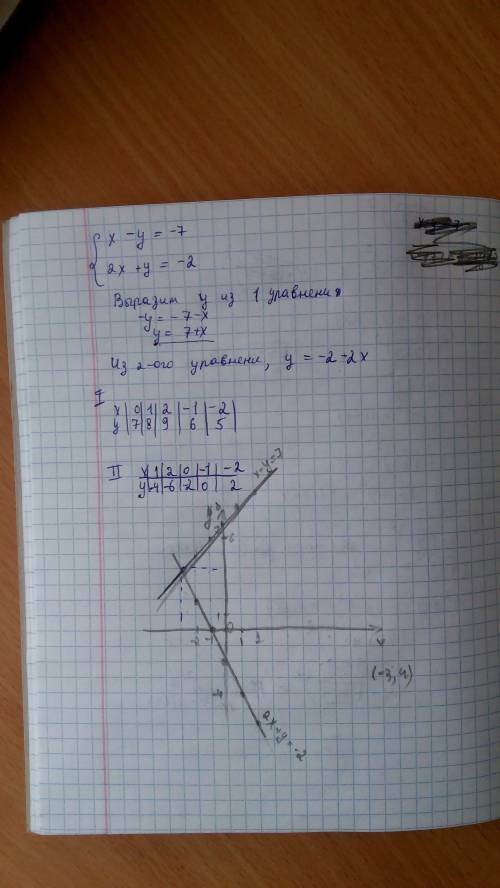 x - y = -7
2x + y = -2
Выразит y из 1 уравнения
-y = -7-x
y = 7+x
Из 2-ого уравнени, y = -2-2x
I
x | 0 | 1 | 2 | -1 | -2
y | 7 | 8 | 9 | 6 | 5
II
x | 1 | 2 | 0 | -1 | -2
y | -4 | -6 | -2 | 0 | 2
x-y=7
6
1
-2 -1 0 1 2
x
(-3,4)
-4
2x+y=-2